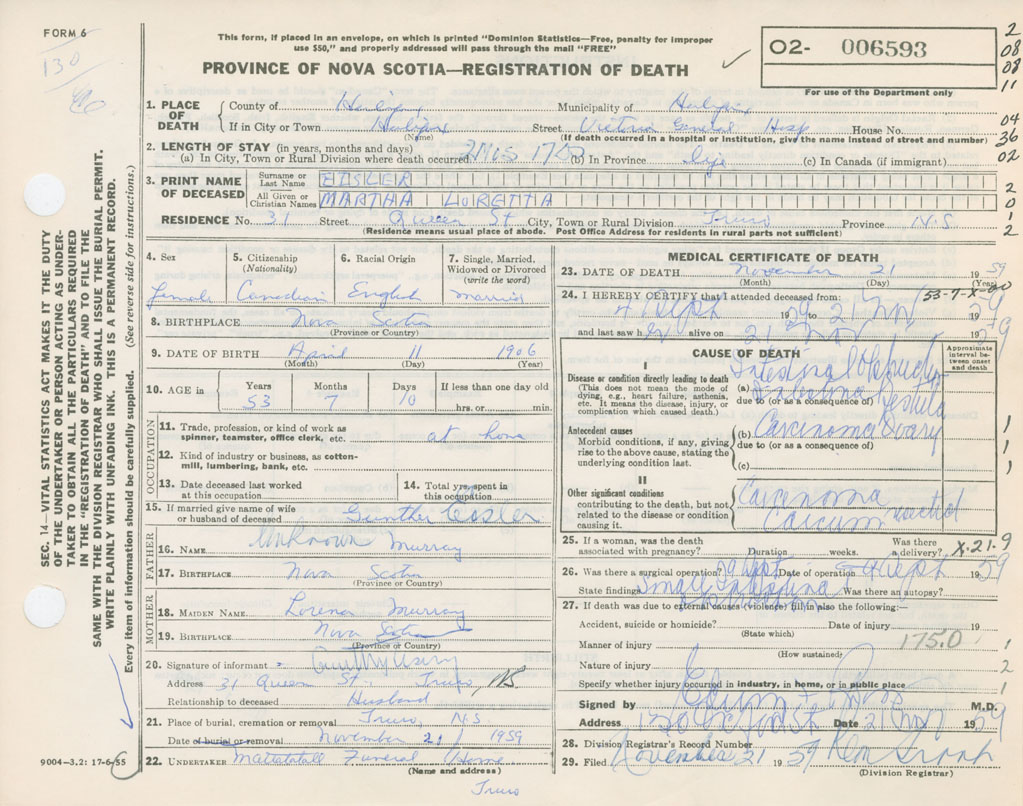 FORM 6
130
This form, if placed in an envelope, on which is printed "Dominion Statistics—Free, penalty for improper
use $50," and properly addressed will pass through the mail "FREE"
PROVINCE OF NOVA SCOTIA—REGISTRATION OF DEATH
O2- 006593
For use of the Department only
2
08
08
11
04
36
02
2
0
1
2
1. PLACE OF DEATH
County of Halifax Municipality of Halifax
If in City or Town Halifax Street Victoria General Hosp House No.
(Name) (If death occurred in a hospital or institution, give the name instead of street and number)
2. LENGTH OF STAY (in years, months and days)
(a) In City, Town or Rural Division where death occurred 2 Mos 17 (b) In Province Life (c) In Canada (if immigrant)
3. PRINT NAME OF DECEASED
Surname or Last Name EISLER
All Given or Christian Names MARTHA LORETTA
RESIDENCE No. 31 Street Queen St City, Town or Rural Division Truro Province N.S.
(Residence means usual place of abode. Post Office Address for residents in rural parts not sufficient)
4. Sex
Female
5. Citizenship (Nationality)
Canadian
6. Racial Origin
English
7. Single, Married, Widowed or Divorced (write the word)
Married
8. BIRTHPLACE Nova Scotia
(Province or Country)
9. DATE OF BIRTH April 11 1906
(Month) (Day) (Year)
10. AGE in
Years 53 Months 7 Days 10 If less than one day old hrs. or min.
OCCUPATION
11. Trade, profession, or kind of work as spinner, teamster, office clerk, etc. at home
12. Kind of industry or business, as cotton-mill, lumbering, bank, etc.
13. Date deceased last worked at this occupation
14. Total yrs. spent in this occupation
15. If married give name of wife or husband of deceased Gunther Eisler
FATHER
16. NAME Unknown Murray
17. BIRTHPLACE Nova Scotia
(Province or Country)
MOTHER
18. MAIDEN NAME Lorena Murray
19. BIRTHPLACE Nova Scotia
(Province or Country)
20. Signature of informant
Address 31 Queen St. Truro, N.S.
Relationship to deceased Husband
21. Place of burial, cremation or removal Truro, N.S.
Date of burial or removal November 21 1959
22. UNDERTAKER Mattatall Funeral Home
(Name and address)
Truro
MEDICAL CERTIFICATE OF DEATH
23. DATE OF DEATH November 21 1959
(Month) (Day) (Year)
53-7-X-00
24. I HEREBY CERTIFY that I attended deceased from:
4 Sept 1959 to 21 Nov 1959
and last saw her alive on 21 Nov 1959
CAUSE OF DEATH
Approximate interval between onset and death
I
Disease or condition directly leading to death
(This does not mean the mode of dying, e.g., heart failure, asthenia, etc. It means the disease, injury, or complication which caused death.)
(a) Intestinal Obstruction
due to (or as a consequence of)
Fistula
Antecedent causes
Morbid conditions, if any, giving rise to the above cause, stating the underlying condition last.
(b) Carcinoma Ovary
due to (or as a consequence of)
(c)
1
1
1
II
Other significant conditions
contributing to the death, but not related to the disease or condition causing it.
Carcinoma
25. If a woman, was the death associated with pregnancy? Duration weeks. Was there a delivery? X-21-9
26. Was there a surgical operation? Date of operation Sept 1959
State findings Was there an autopsy?
27. If death was due to external causes (violence) fill in also the following:—
Accident, suicide or homicide? Date of injury 19
(State which)
Manner of injury 175.0
(How sustained)
1
Nature of injury 2
Specify whether injury occurred in industry, in home, or in public place 1
Signed by M.D.
Address Date 21 Nov 1959
28. Division Registrar's Record Number
29. Filed November 21 1959
(Division Registrar)
SEC. 14—VITAL STATISTICS ACT MAKES IT THE DUTY
OF THE UNDERTAKER OR PERSON ACTING AS UNDER-
TAKER TO OBTAIN ALL THE PARTICULARS REQUIRED
IN THE "REGISTRATION OF DEATH" AND TO FILE THE
SAME WITH THE DIVISION REGISTRAR WHO SHALL ISSUE THE BURIAL PERMIT.
WRITE PLAINLY WITH UNFADING INK. THIS IS A PERMANENT RECORD.
Every item of information should be carefully supplied. (See reverse side for instructions.)
9004-3.2: 17-6-55